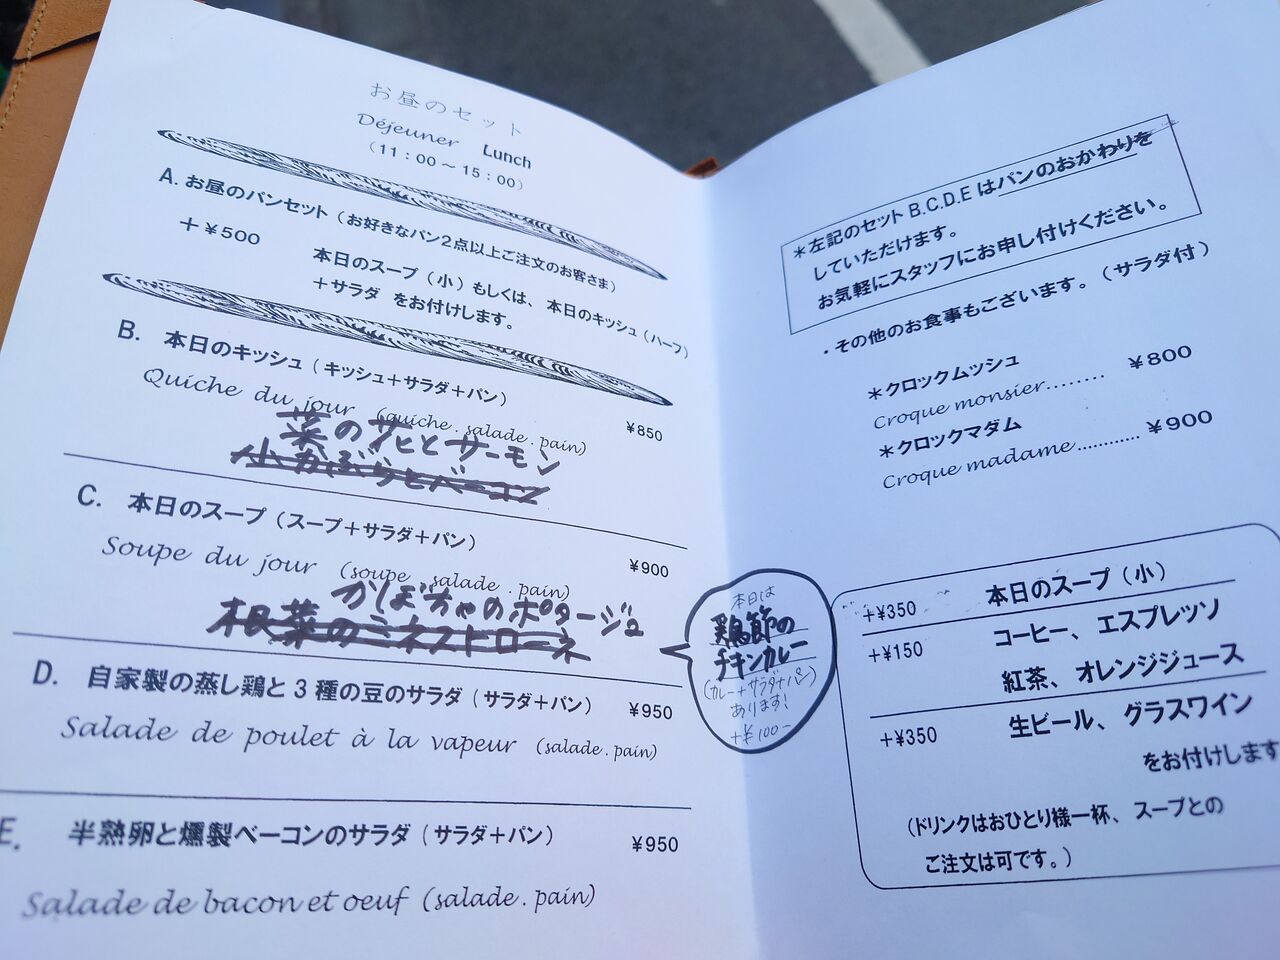 お昼のセット
Déjeuner Lunch
(11:00～15:00)
A. お昼のパンセット(お好きなパン2点以上ご注文のお客さま)
＋¥500 本日のスープ(小)もしくは、本日のキッシュ(ハーフ)
＋サラダ をお付けします。
B. 本日のキッシュ(キッシュ＋サラダ＋パン)
Quiche du jour (quiche.salade.pain) ¥850
菜の花とサーモン
小かぶらとベーコン
C. 本日のスープ(スープ＋サラダ＋パン)
Soupe du jour (soupe salade.pain) ¥900
かぼちゃのポタージュ
根菜のミネストローネ
D. 自家製の蒸し鶏と3種の豆のサラダ(サラダ＋パン) ¥950
Salade de poulet à la vapeur (salade.pain)
E. 半熟卵と燻製ベーコンのサラダ(サラダ＋パン) ¥950
Salade de bacon et oeuf (salade.pain)
本日は
鶏節の
チキンカレー
(カレー＋サラダ＋パン)
あります!
＋¥100－
＊左記のセットB.C.D.Eはパンのおかわりを
していただけます。
お気軽にスタッフにお申し付けください。
・その他のお食事もございます。(サラダ付)
＊クロックムッシュ ¥800
Croque monsier........
＊クロックマダム ¥900
Croque madame...........
+¥350 本日のスープ(小)
+¥150 コーヒー、エスプレッソ
紅茶、オレンジジュース
+¥350 生ビール、グラスワイン
をお付けします
(ドリンクはおひとり様一杯、スープとの
ご注文は可です。)